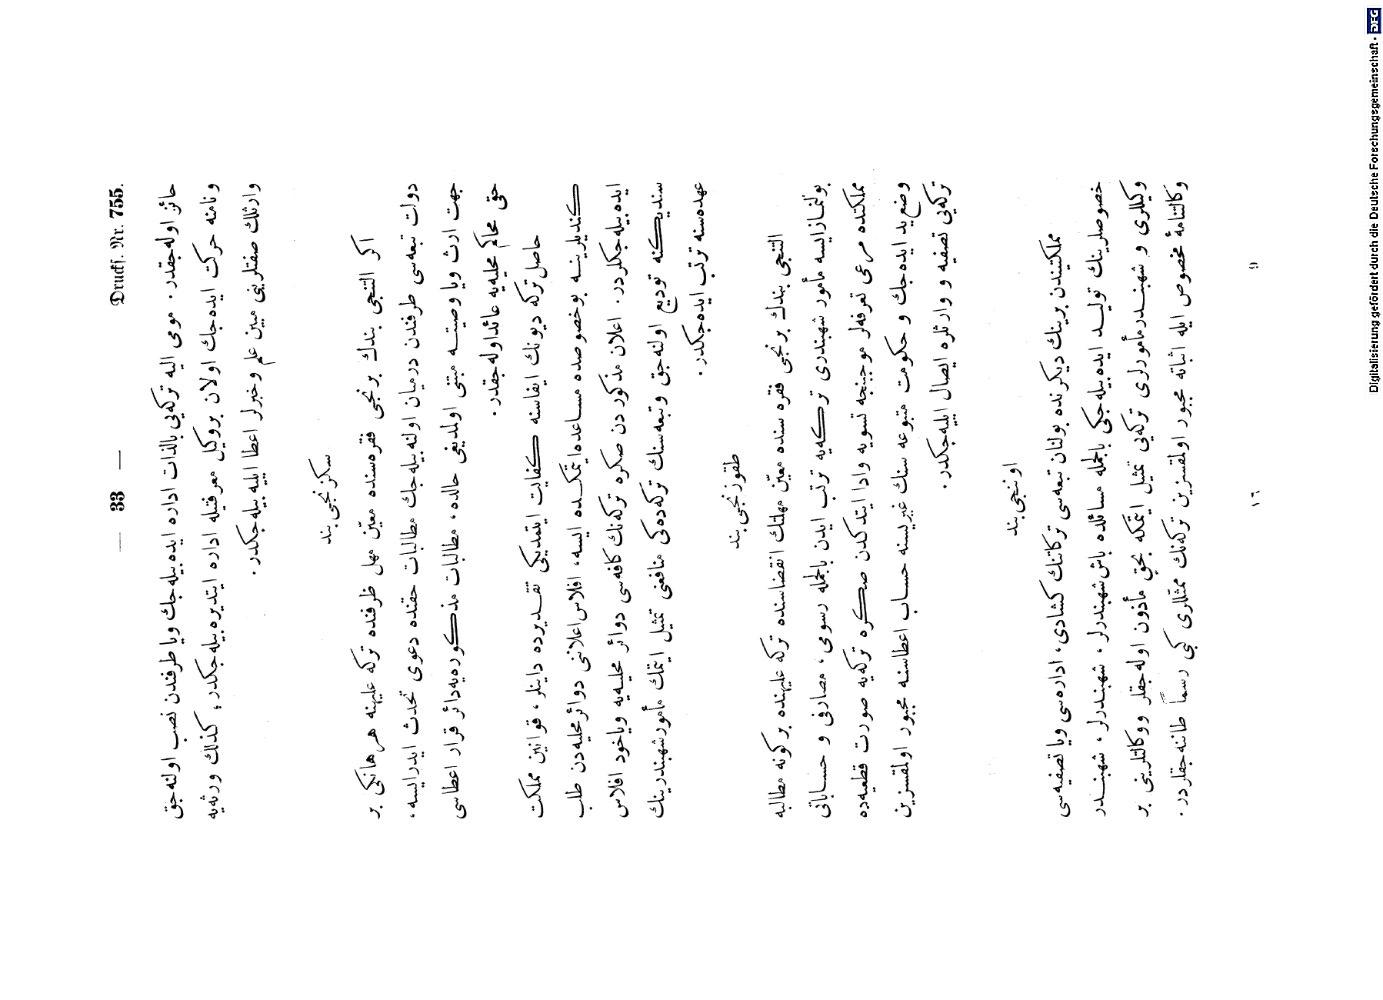 — 33 — Drucks. Nr. 755.
حائز اوله‌جقدر. مومی الیه ترکه‌یی بالذات اداره ایده‌بیله‌جك ویا طرفندن نصب اوله‌جق
ونامنه حرکت ایده‌جك اولان بروکیل معرفتیله اداره ایتدیره بیله‌جکدر، کذلك ورثه‌یه
وارثلك صفتلرینی مبین علم وخبرلر اعطا ایلیه بیله‌جکدر.
سکزنجی بند
اکر التنجی بندك برنجی فقره‌سنده معیّن مهل ظرفنده ترکه علیهنه هر هانکی بر
دولت تبعه‌سی طرفندن درمیان اولنه بیله‌جك مطالبات حقنده دعوی تحدث ایدرایسه،
جهت ارث ویا وصیته مبتنی اولمدیغی حالده، مطالبات مذکوره‌یه‌دائر قرار اعطاسی
حقی محاکم محلیه‌یه عائد اوله‌جقدر.
حاصل ترکه دیونك ایفاسنه کفایت ایتمدیکی تقدیرده داینلر، قوانین مملکت
کندیلرینه بوخصوصده مساعده‌ایتمکده ایسه، افلاس اعلاننی دوائر محلیه‌دن طلب
ایده بیله‌جکلردر. اعلان مذکوردن صکره ترکه‌نك کافه‌سی دوائر محلیه‌یه ویاخود افلاس
سندیکنه تودیع اوله‌جق وتبعه‌سنك ترکه‌ده‌کی منافعنی تمثیل ایتمك مأمور شهبندرینك
عهده‌سنه ترتب ایده‌جکدر.
طقوزنجی بند
التنجی بندك برنجی فقره سنده معیّن مهلتك انقضاسنده ترکه علیهنده بر کونه مطالبه
بولنماز ایسه مأمور شهبندری ترکه‌یه ترتب ایدن بالجمله رسومی، مصارفی و حساباتی
مملکتده مرعی تعرفه‌لر موجبنجه تسویه وادا ایتدکدن صکره ترکه‌یه صورت قطعیه‌ده
وضع ید ایده‌جك و حکومت متبوعه سنك غیریسنه حساب اعطاسنه مجبور اولمقسزین
ترکه‌یی تصفیه و وارثلره ایصال ایلیه‌جکدر.
اوننجی بند
مملکتیندن برینك دیکرنده بولنان تبعه‌سی ترکاتنك کشادی، اداره‌سی ویا تصفیه‌سی
خصوصلرینك تولید ایده بیله‌جکی بالجمله مسائلده باش شهبندرلر، شهبندرلر، شهبندر
وکیللری و شهبندر مأمورلری ترکه‌یی تمثیل ایتمکه بحق مأذون اوله‌جقلر ووکالتلرینی بر
وکالتنامهٔ مخصوص ایله اثباته مجبور اولمقسزین ترکه‌نك ممثللری کبی رسماً طاننه جقلردر.
١٦ 9
Digitalisierung gefördert durch die Deutsche Forschungsgemeinschaft - DFG